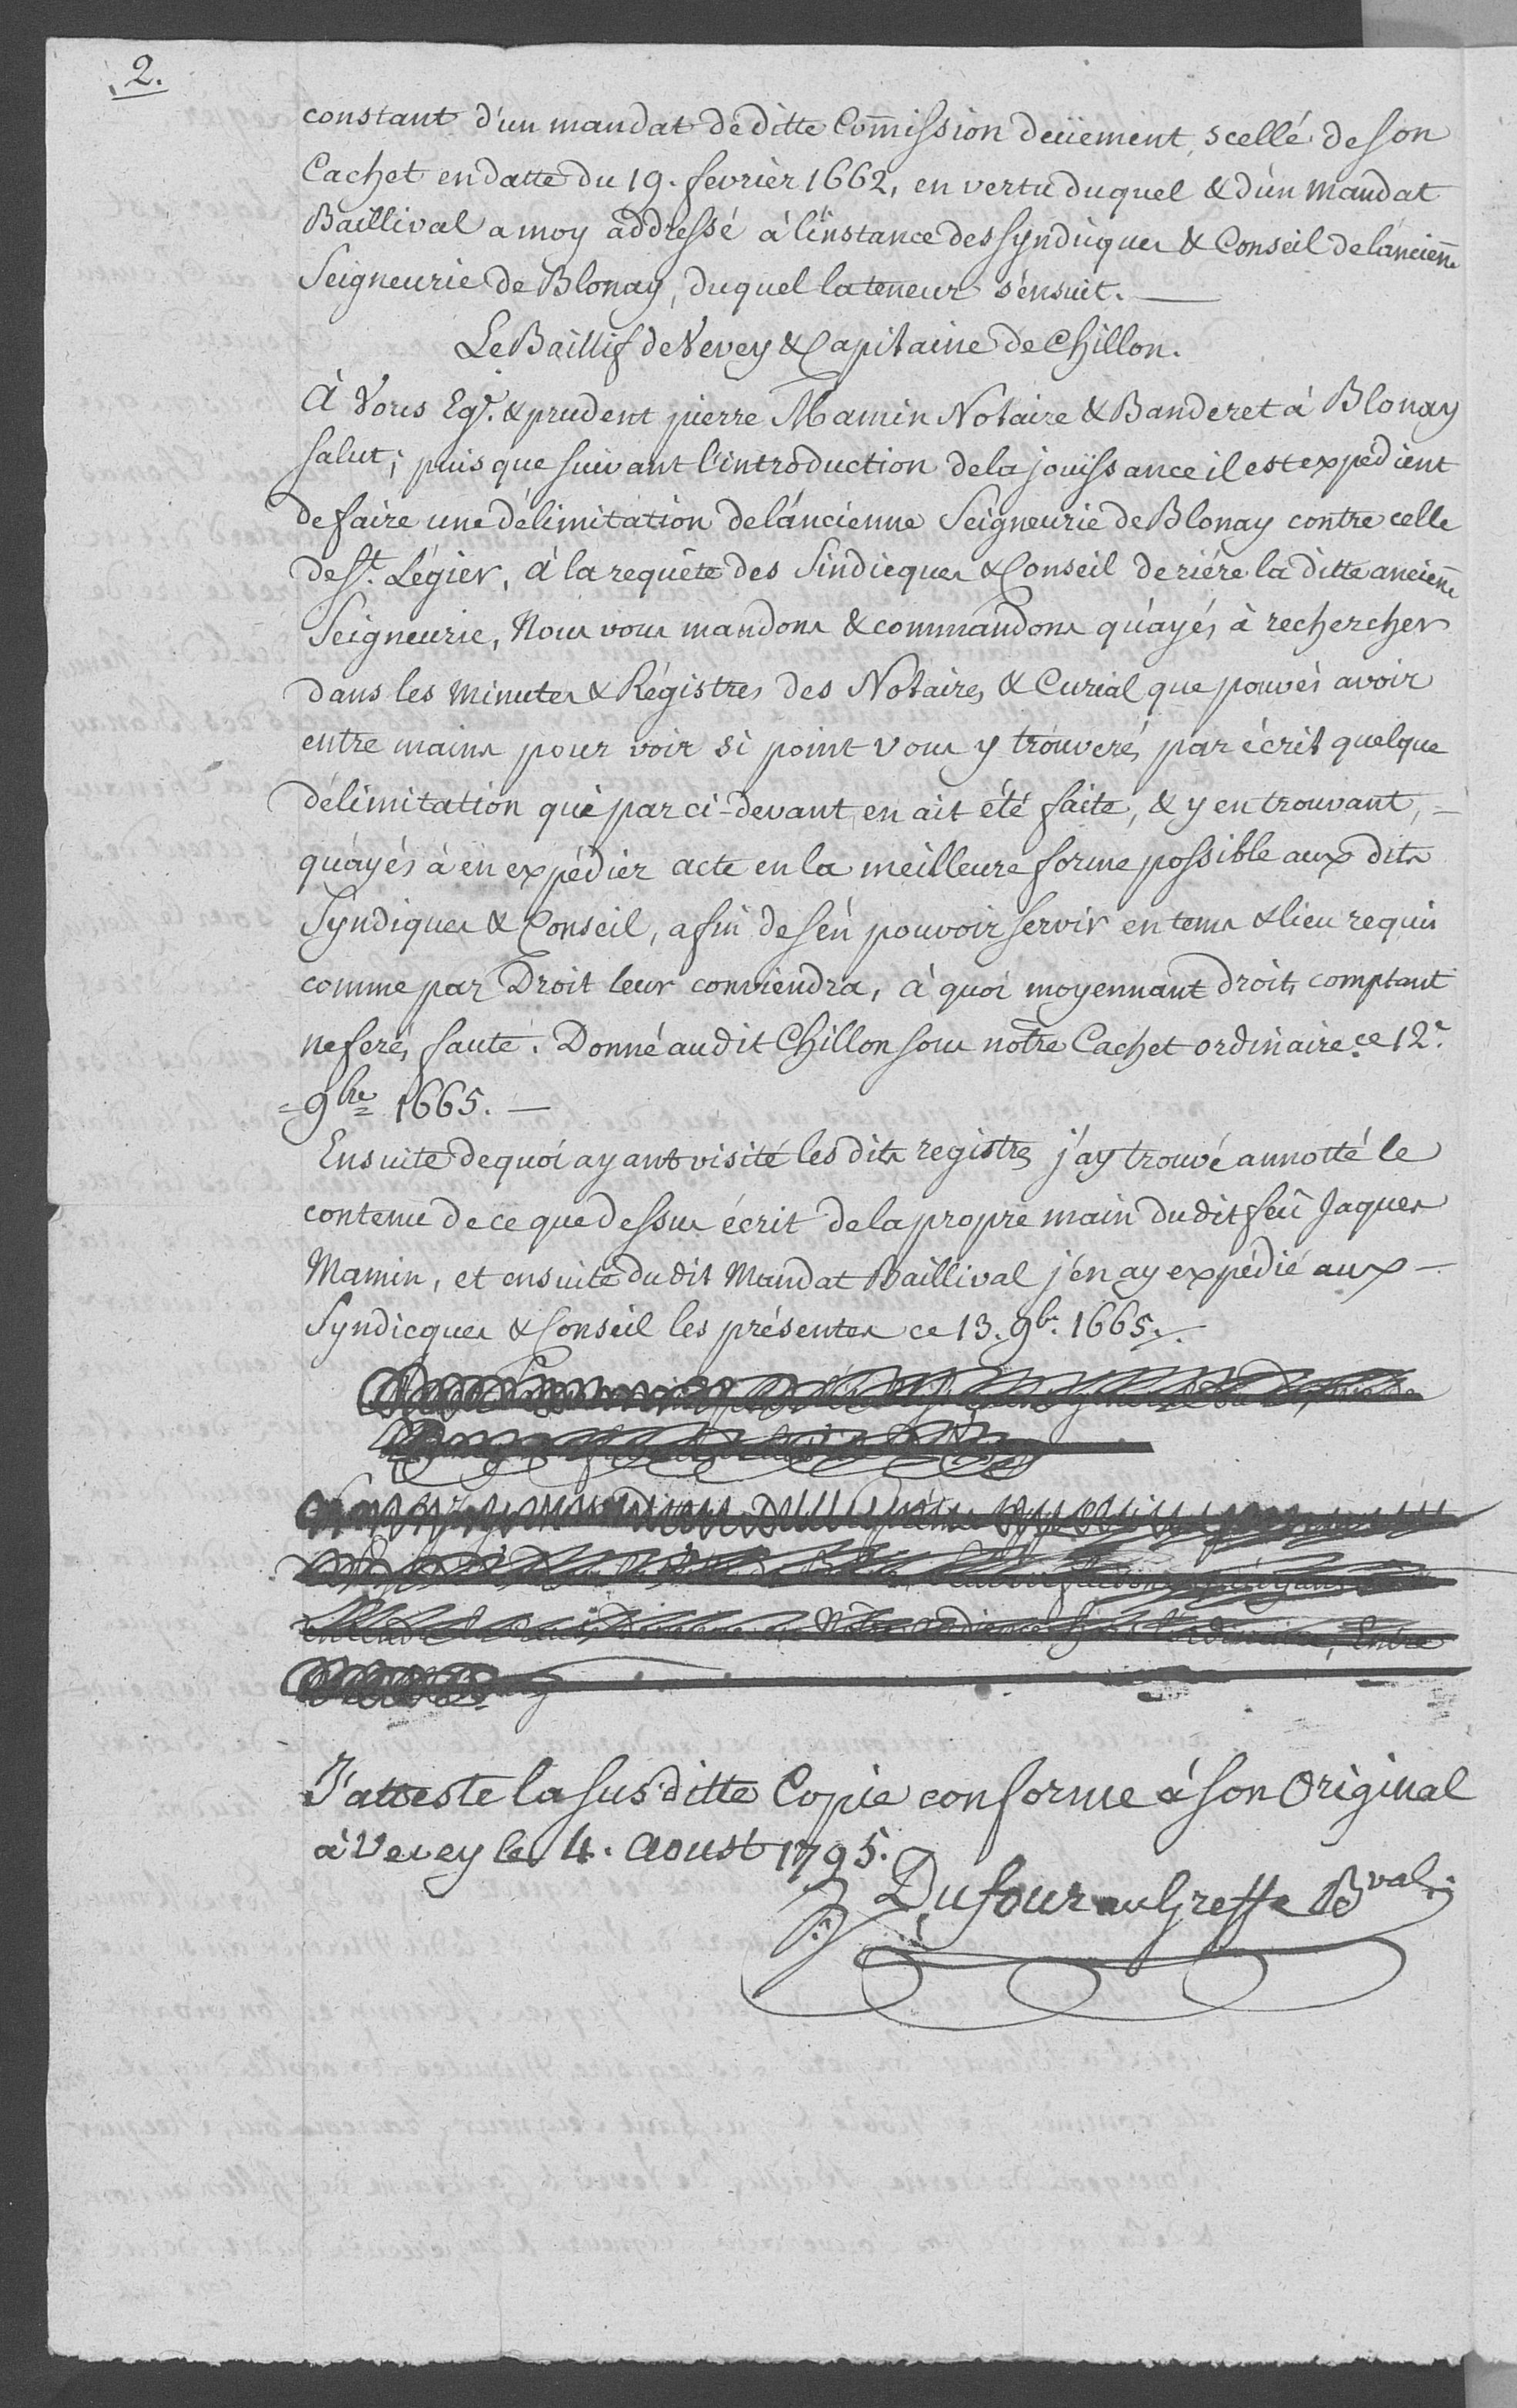 2.
constant d'un mandat de ditte Comission deüement, scellé de son
Cachet en datte du 19. fevrier 1662, en vertu duquel & d'un mandat
Baillival a moy addressé à l'instance des syndicques & Conseil de l'anciene
Seigneurie de Blonay, duquel la teneur s'ensuit. —
Le Baillif de Vevey & Capitaine de Chillon.
À Vous Eg. & prudent pierre Mamin Notaire & Banderet à Blonay
salut; puis que suivant l'introduction de la jouissance il est expédient
de faire une délimitation de l'áncienne Seigneurie de Blonay contre celle
de St. Légier, à la requête des Sindicques & Conseil deriére la ditte anciene
Seigneurie, Nous vous mandons & commandons qu'ayés à rechercher
dans les minutes & Régistres des Notaires & Curial que pouvés avoir
entre mains pour voir si point vous y trouverés par écrit quelque
délimitation qui par ci-devant en ait été faite, & y en trouvant, —
qu'ayés à en expédier acte en la meilleure forme possible aux dits
Syndiques & Conseil, afin de s'en pouvoir servir en tems & lieu requis
comme par Droit leur conviendra, à quoi moyennant droits comptant
ne ferés faute. Donné audit Chillon sous nôtre Cachet ordinaire ce 12e.
= 9bre 1665. —
Ensuite dequoi ayant visité les dits registres j'ay trouvé annotté le
contenu de ce que dessus écrit de la propre main du dit feû Jaques
Mamin, et ensuite du dit Mandat Baillival j'en ay expédié aux —
Syndicques & Conseil les présentes ce 13. 9br. 1665.
Entre
J'atteste la sus ditte Copie conforme à son Original
à Vevey le 4. Aoust 1795.
Dufour au Greffe Bval.